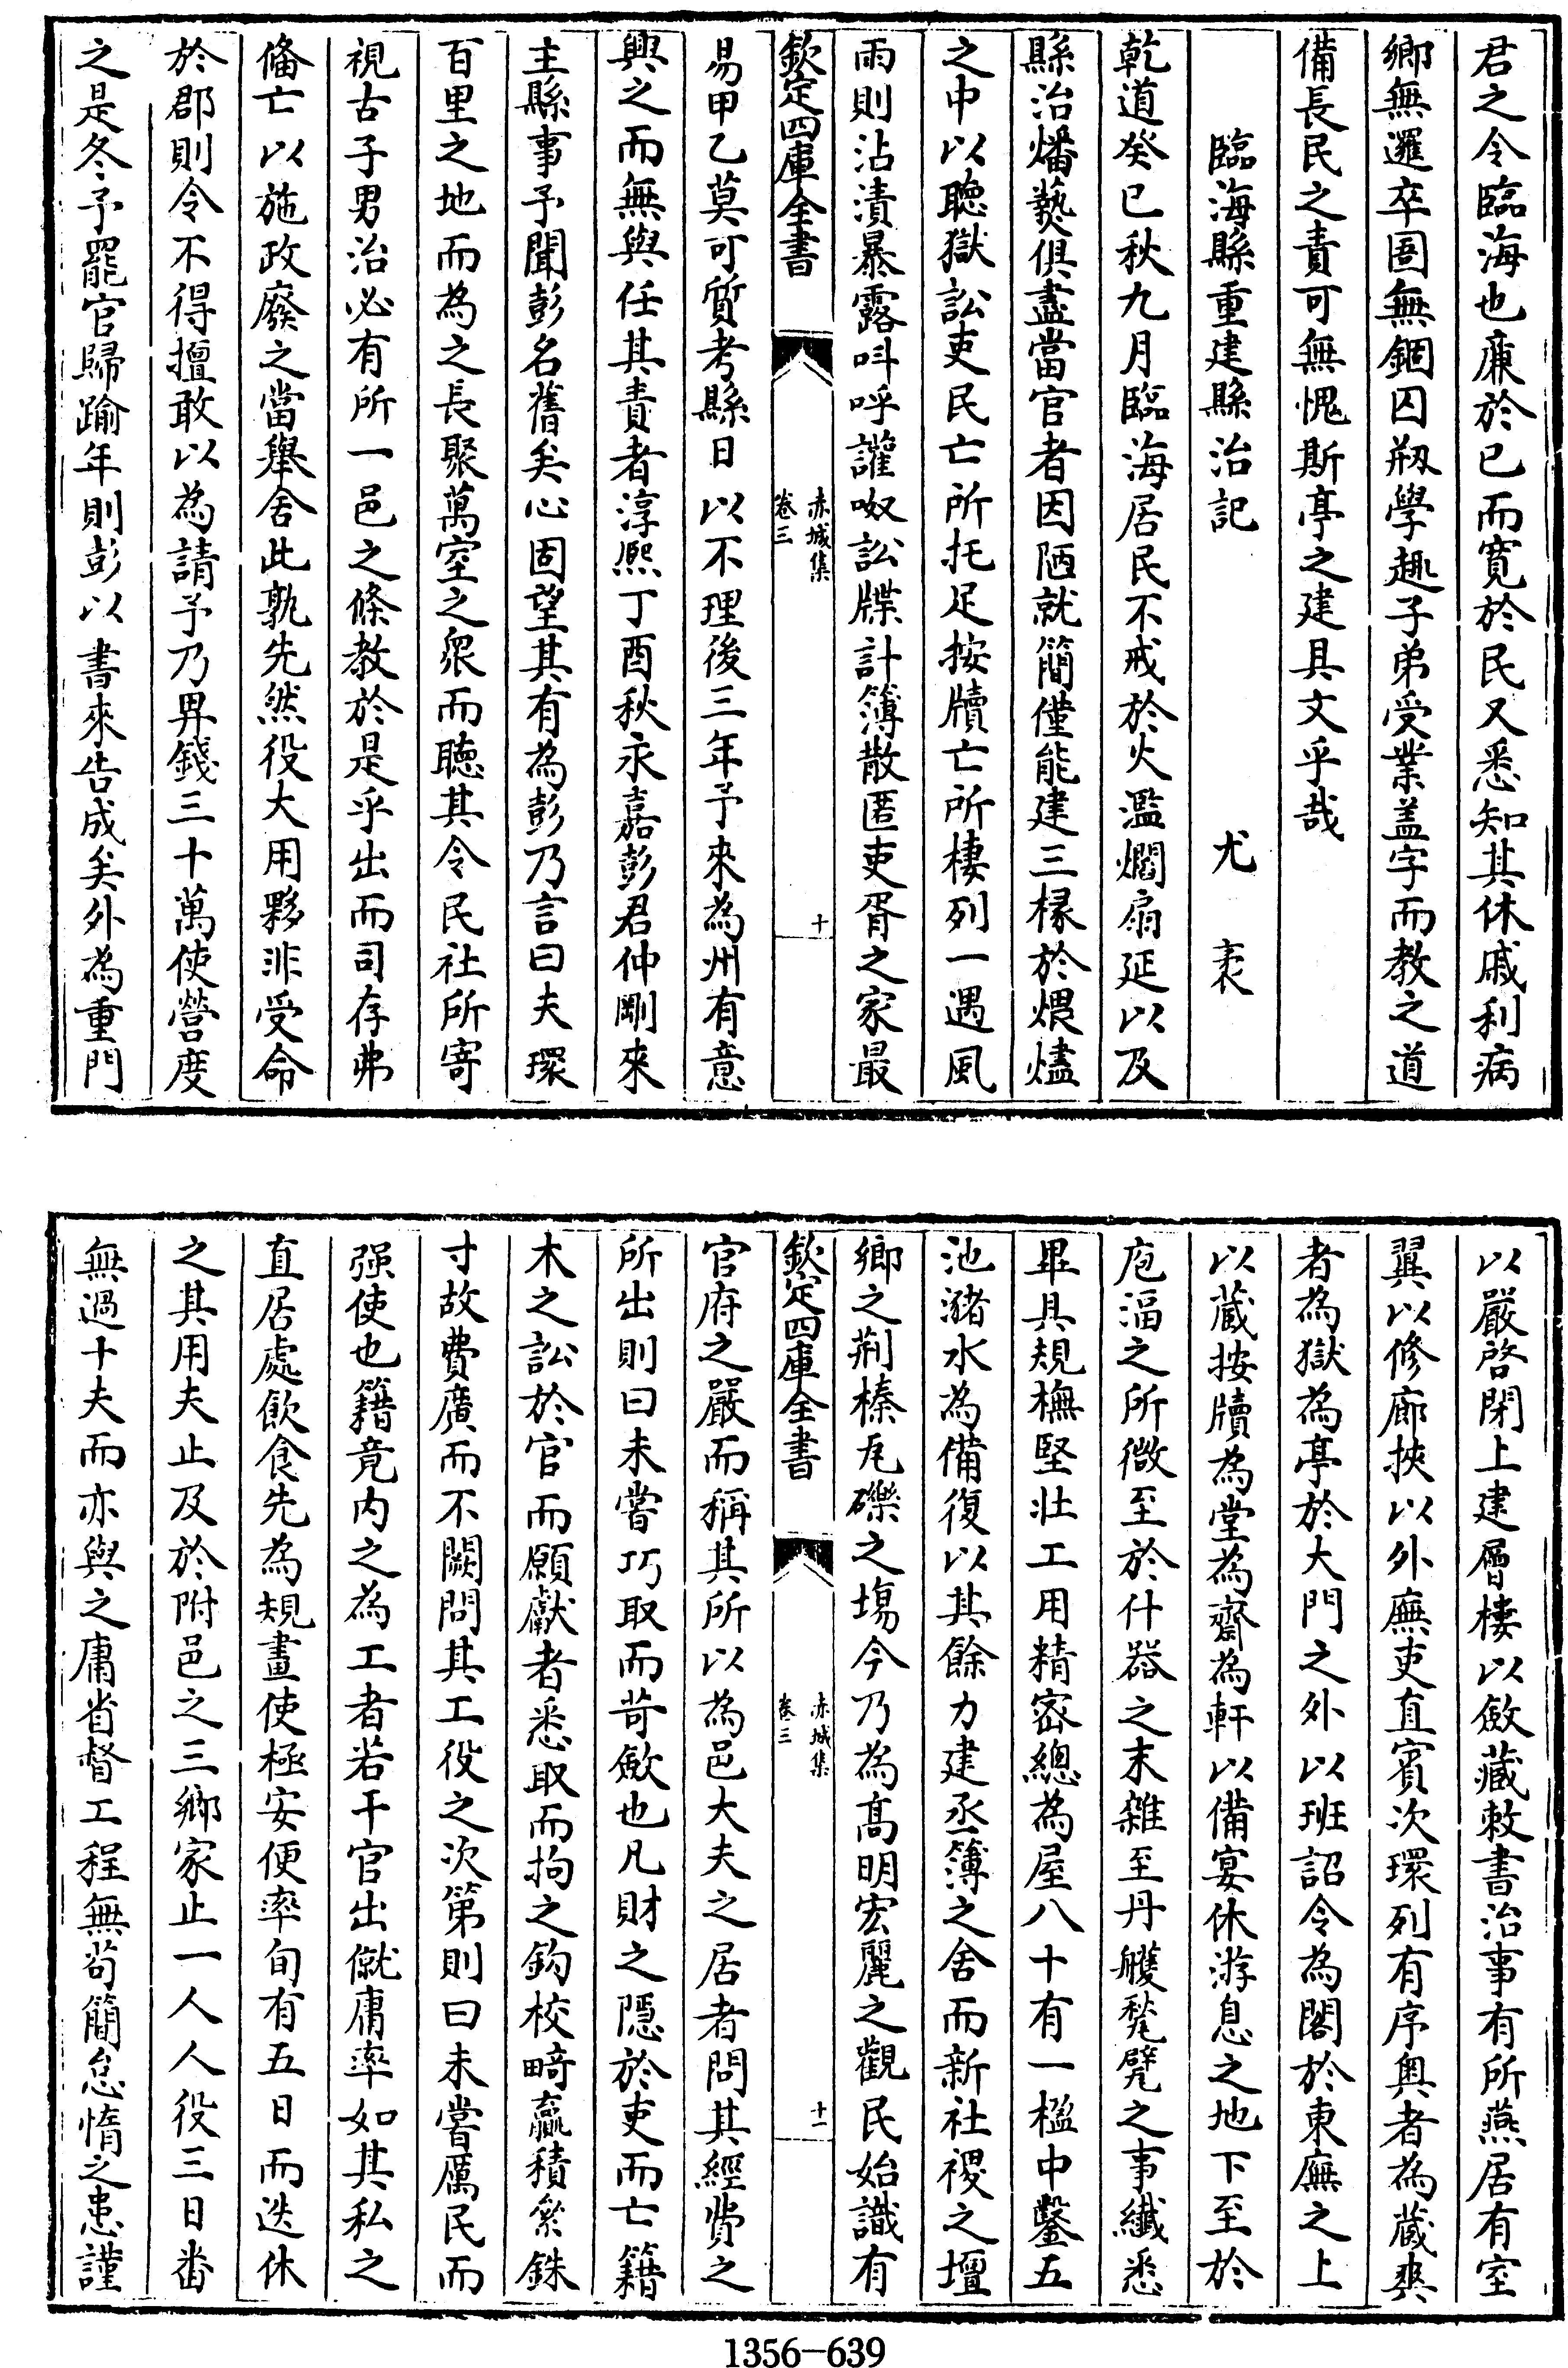 君之令臨海也廉於已而寛於民又悉知其休戚利病
鄉無邏卒囹無錮囚剏學趣子弟受業盖字而教之道
備長民之責可無愧斯亭之建具文乎哉
臨海縣重建縣治記 尤袤
乾道癸巳秋九月臨海居民不戒於火濫爓扇延以及
縣治燔爇俱盡當官者因陋就簡僅能建三椽於煨燼
之中以聽獄訟吏民亡所托足按牘亡所棲列一遇風
雨則沾漬暴露呌呼讙呶訟牒計簿散匿吏胥之家最
欽定四庫全書
赤城集
卷三
十
易甲乙莫可質考縣日以不理後三年予來為州有意
興之而無與任其責者淳熈丁酉秋永嘉彭君仲剛來
主縣事予聞彭名舊矣心固望其有為彭乃言曰夫環
百里之地而為之長聚萬室之衆而聽其令民社所寄
視古子男治必有所一邑之條教於是乎出而司存弗
俻亡以施政廢之當舉舍此孰先然役大用夥非受命
於郡則令不得擅敢以為請予乃畀錢三十萬使營度
之是冬予罷官歸踰年則彭以書來告成矣外為重門
以嚴啓閉上建層樓以斂藏敕書治事有所燕居有室
翼以修廊挾以外廡吏直賓次環列有序奥者為蔵爽
者為獄為亭於大門之外以班詔令為閣於東廡之上
以蔵按牘為堂為齋為軒以備宴休游息之地下至於
庖湢之所微至於什器之末雜至丹艧甃甓之事纖悉
畢具規橅堅壯工用精密總為屋八十有一楹中鑿五
池瀦水為備復以其餘力建丞簿之舍而新社禝之壇
鄉之荆榛瓦礫之塲今乃為髙明宏麗之觀民始識有
欽定四庫全書
赤城集
卷三
十一
官府之嚴而稱其所以為邑大夫之居者問其經費之
所出則曰未嘗巧取而苛歛也凡財之隠於吏而亡籍
木之訟於官而願獻者悉取而拘之鈎校畸贏積絫銖
寸故費廣而不闕問其工役之次第則曰未嘗厲民而
强使也籍竟内之為工者若干官出僦庸率如其私之
直居處飲食先為規畫使極安便率旬有五日而迭休
之其用夫止及於附邑之三鄉家止一人人役三日畨
無過十夫而亦與之庸省督工程無苟簡怠惰之患謹
1356-639